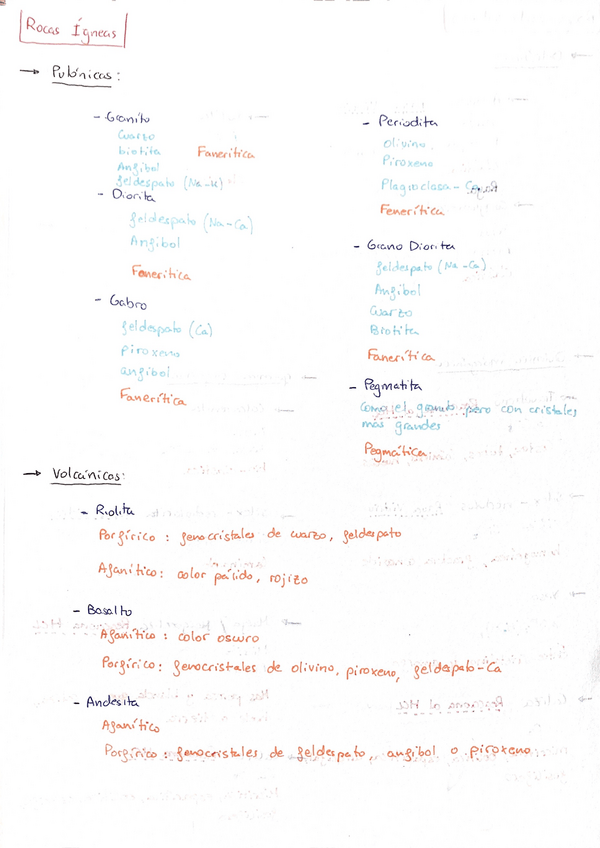 Rocas Ígneas
→ Plutónicas:
- Granito
Cuarzo
biotita Fanerítica
Anfibol
feldespato (Na-K)
- Diorita
feldespato (Na-Ca)
Anfibol
Fanerítica
- Gabro
feldespato (Ca)
piroxeno
anfibol
Fanerítica
- Periodita
Olivino
Piroxeno
Plagioclasa -
Fenerítica
- Grano Diorita
feldespato (Na-Ca)
Anfibol
Cuarzo
Biotita
Fanerítica
- Pegmatita
Como el granito pero con cristales
más grandes
Pegmática
→ Volcánicas:
- Riolita
Porfírico: fenocristales de cuarzo, feldespato
Afanítico: color pálido, rojizo
- Basalto
Afanítico: color oscuro
Porfírico: fenocristales de olivino, piroxeno, feldespato-Ca
- Andesita
Afanítico
Porfírico: fenocristales de feldespato, anfibol o piroxeno